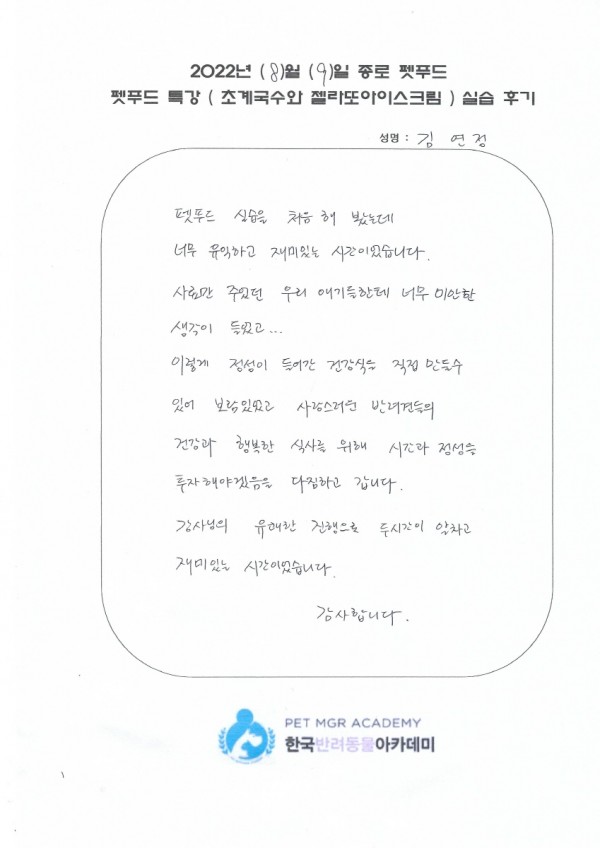 2022년 (8)월 (9)일 종로 펫푸드
펫푸드 특강 ( 초계국수와 젤라또아이스크림 ) 실습 후기
성명 : 김 연정
펫푸드 실습을 처음 해 봤는데
너무 유익하고 재미있는 시간이었습니다.
사료만 주었던 우리 애기들한테 너무 미안한
생각이 들었고...
이렇게 정성이 들어간 건강식을 직접 만들수
있어 보람있었고 사랑스러운 반려견들의
건강과 행복한 식사를 위해 시간과 정성을
투자해야겠음을 다짐하고 갑니다.
강사님의 유쾌한 진행으로 두시간이 알차고
재미있는 시간이었습니다.
감사합니다.
PET MGR ACADEMY
한국반려동물아카데미